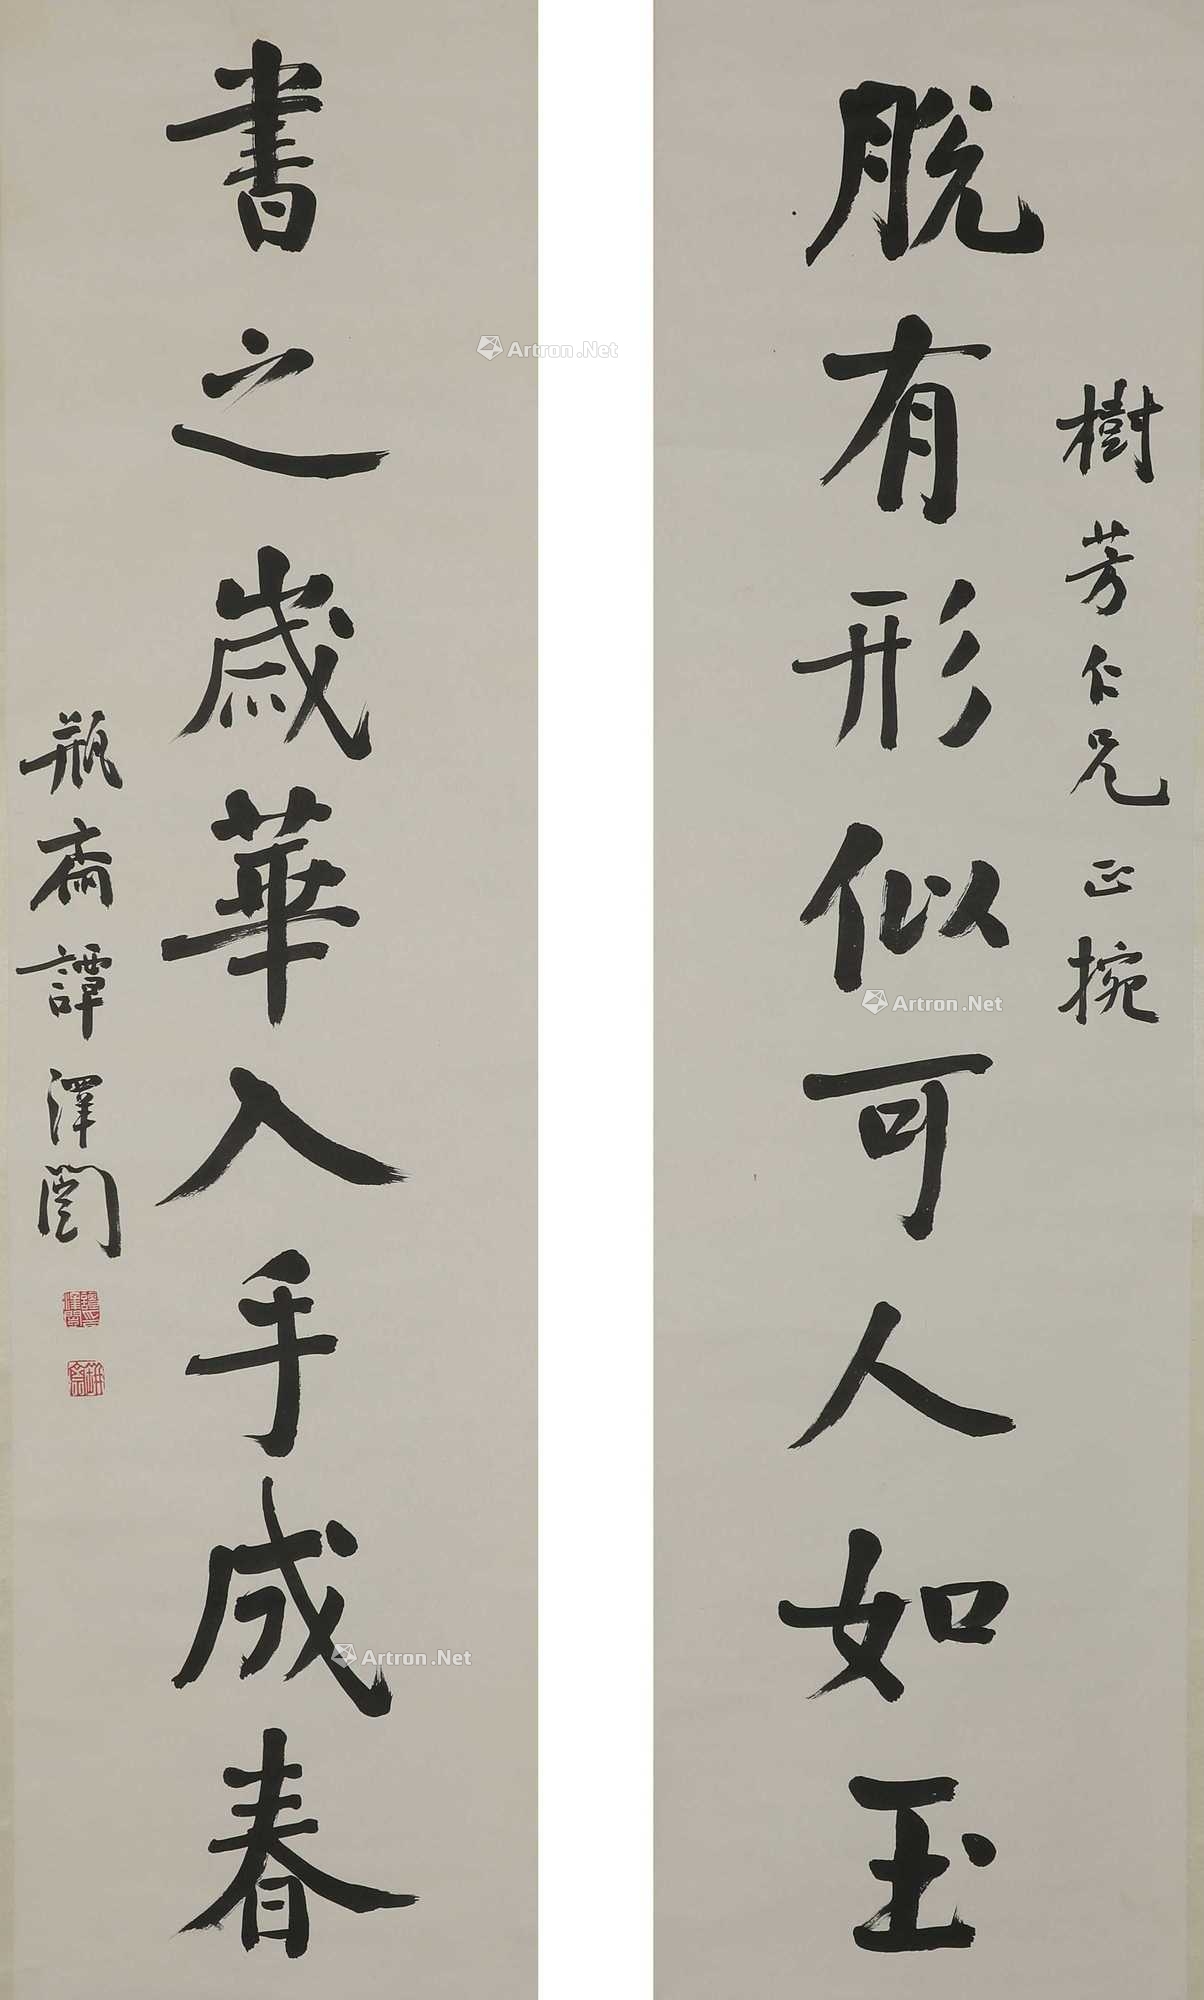 樹芳仁兄正捥
脫有形似可人如玉
書之歲華入手成春
瓶齋譚澤闓
Artron.Net
Artron.Net
Artron.Net